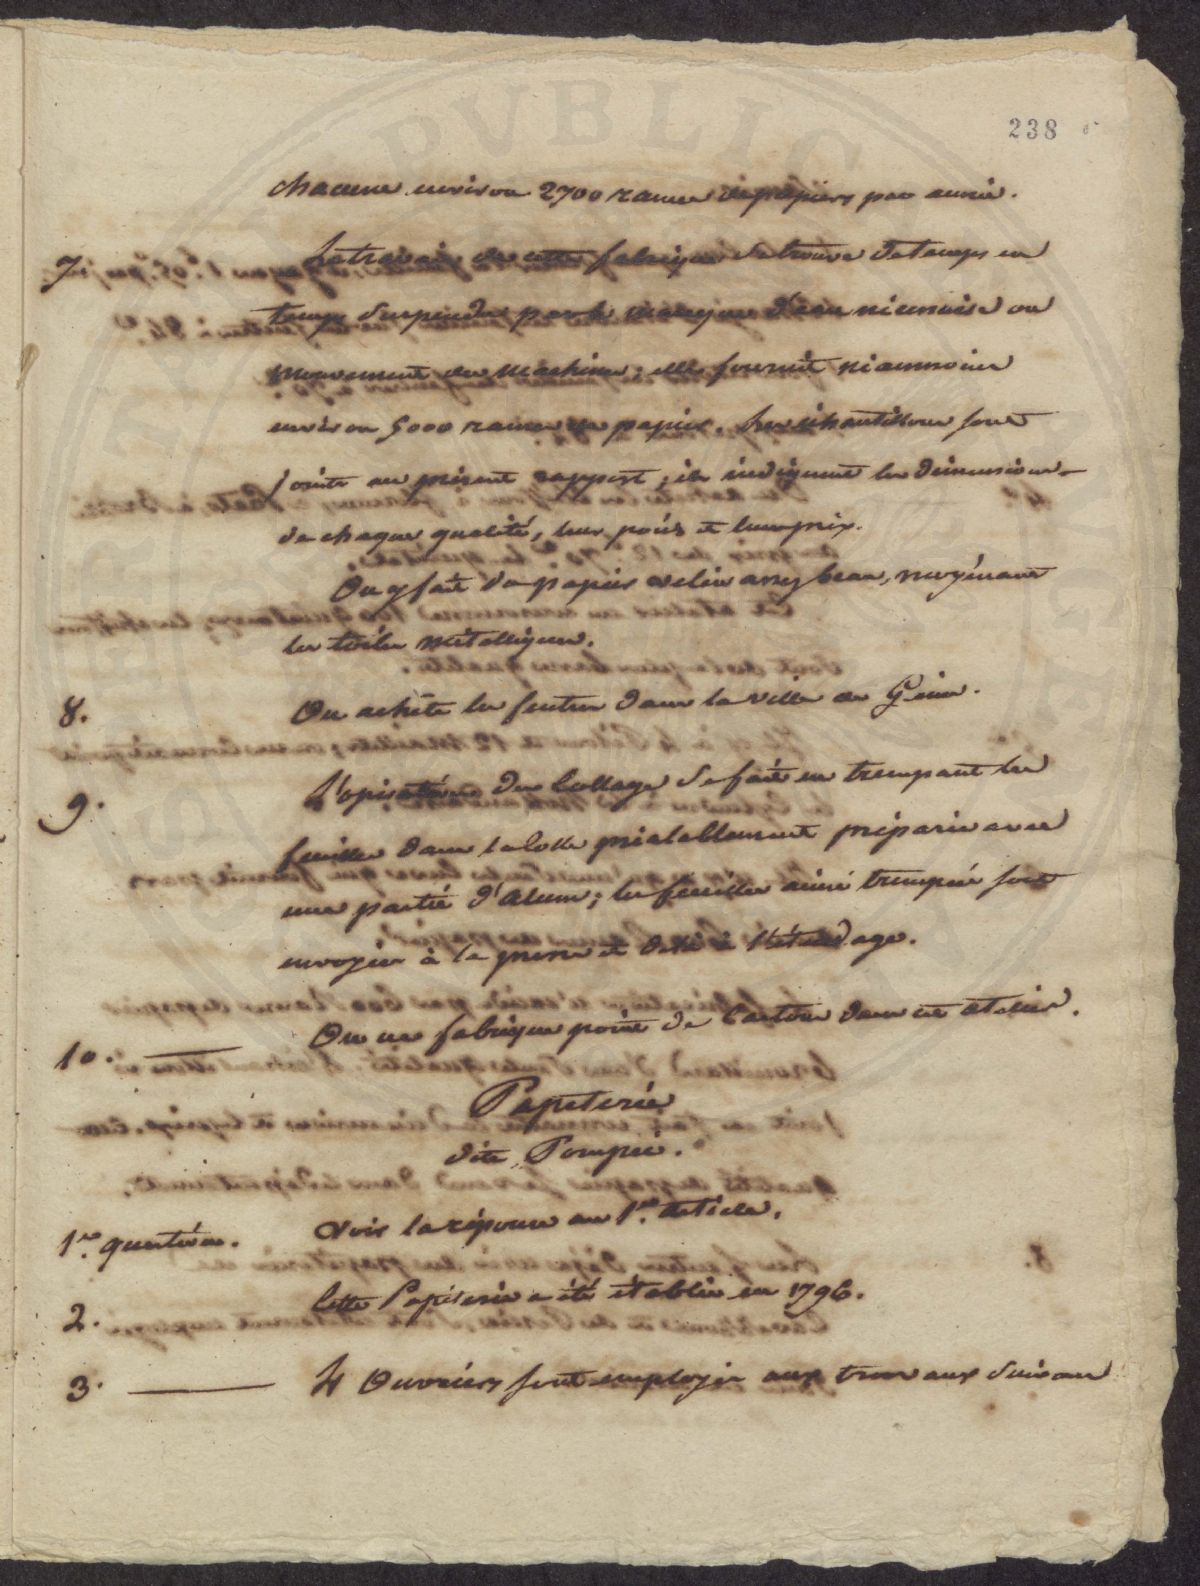 238
chacune environ 2700 rames de papiers par année.
7. Le travail de cette fabrique se trouve de temps en
temps suspendu par le manque d'eau nécessaire au
mouvement des machines; elle fournit néanmoins
environ 5000 rames de papier. Les échantillons sont
joints au présent rapport; ils indiquent les dimensions
de chaque qualité, leur poids et leur prix.
On y fait du papier velin assez beau, moyénant
les toiles métalliques.
8. On achète les feutres dans la ville de Gênes.
9. L'opération du Collage se fait en trempant les
feuilles dans la colle préalablement préparée avec
une partie d'alum; les feuilles ainsi trempées sont
envoyées à la presse et delà à l'étendage.
10. On ne fabrique point de Carton dans cet atelier.
Papeterie
dite Pompée.
1re question. Voir la réponse au 1er article.
2. Cette Papéterie a été établie en 1796.
3. 4 Ouvriers sont employés aux travaux suivans